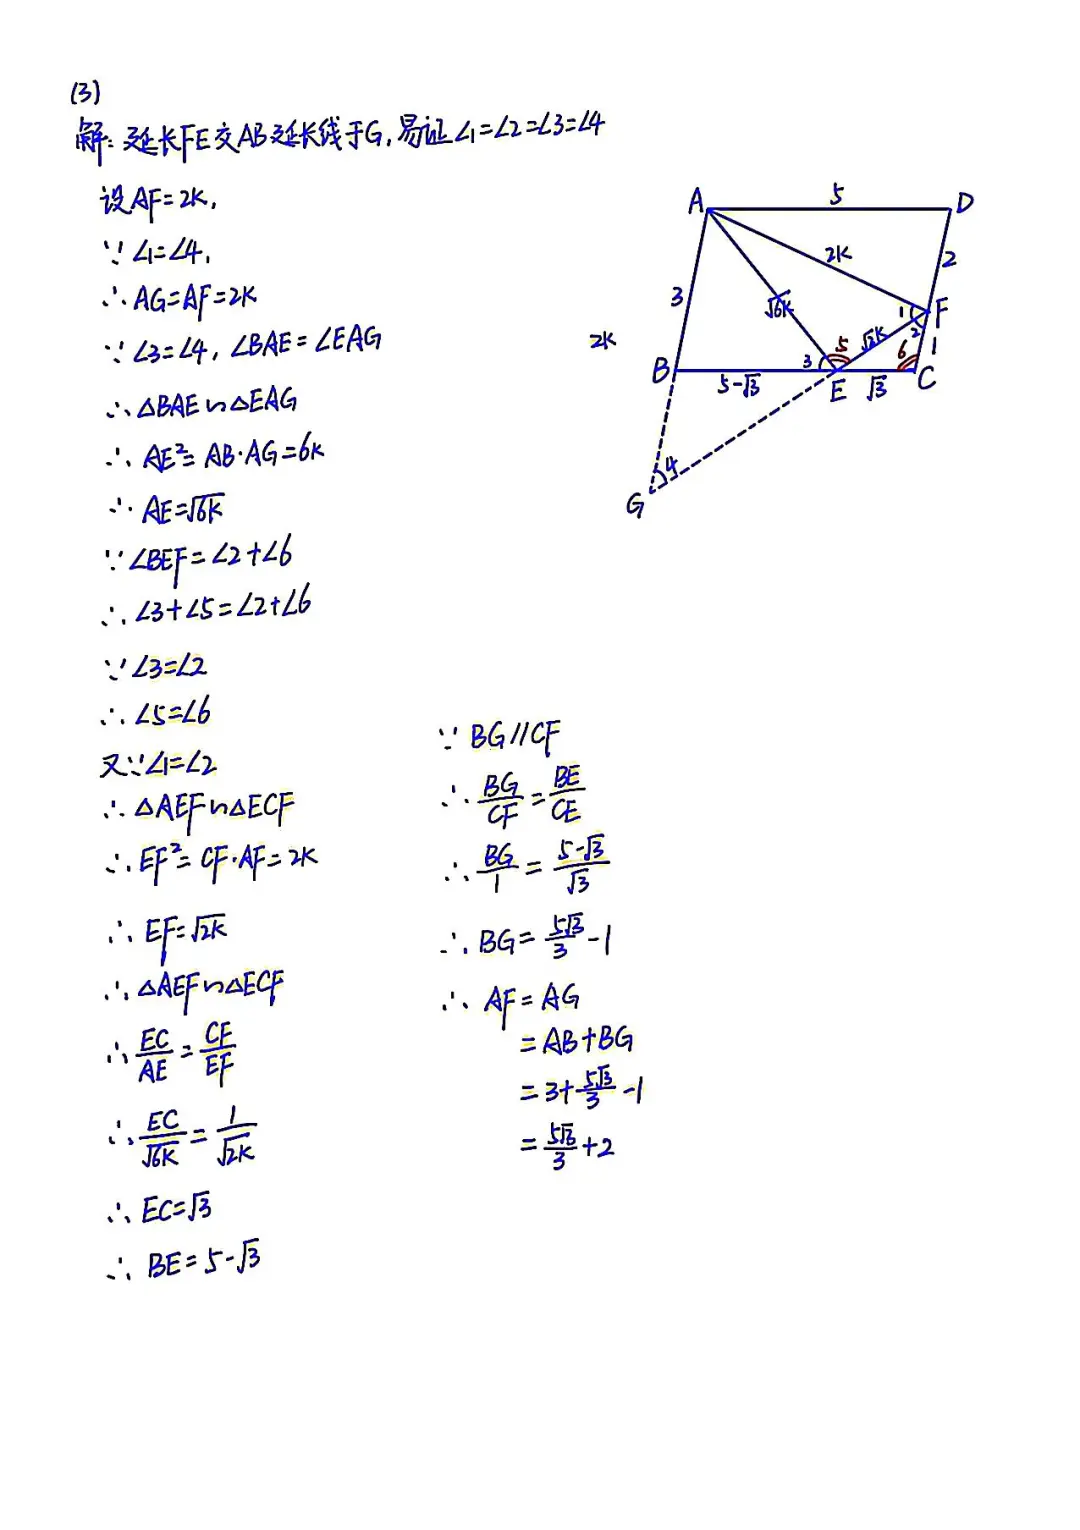 (3)
解: 延长FE交AB延长线于G, 易证∠1=∠2=∠3=∠4
设AF=2K,
∵∠1=∠4,
∴AG=AF=2K
∵∠3=∠4, ∠BAE=∠EAG
∴△BAE∽△EAG
∴AE²=AB·AG=6K
∴AE=√6K
∵∠BEF=∠2+∠6
∴∠3+∠5=∠2+∠6
∵∠3=∠2
∴∠5=∠6
又∵∠1=∠2
∴△AEF∽△ECF
∴EF²=CF·AF=2K
∴EF=√2K
∴△AEF∽△ECF
∴EC/AE=CF/EF
∴EC/√6K=1/√2K
∴EC=√3
∴BE=5-√3
∵BG//CF
∴BG/CF=BE/CE
∴BG/1=5-√3/√3
∴BG=5√3/3-1
∴AF=AG
=AB+BG
=3+5√3/3-1
=5√3/3+2
A 5 D
2K 2
3 √6K 1 F
2K 3 5 √2K 2 6 1
B 5-√3 E √3 C
4
G